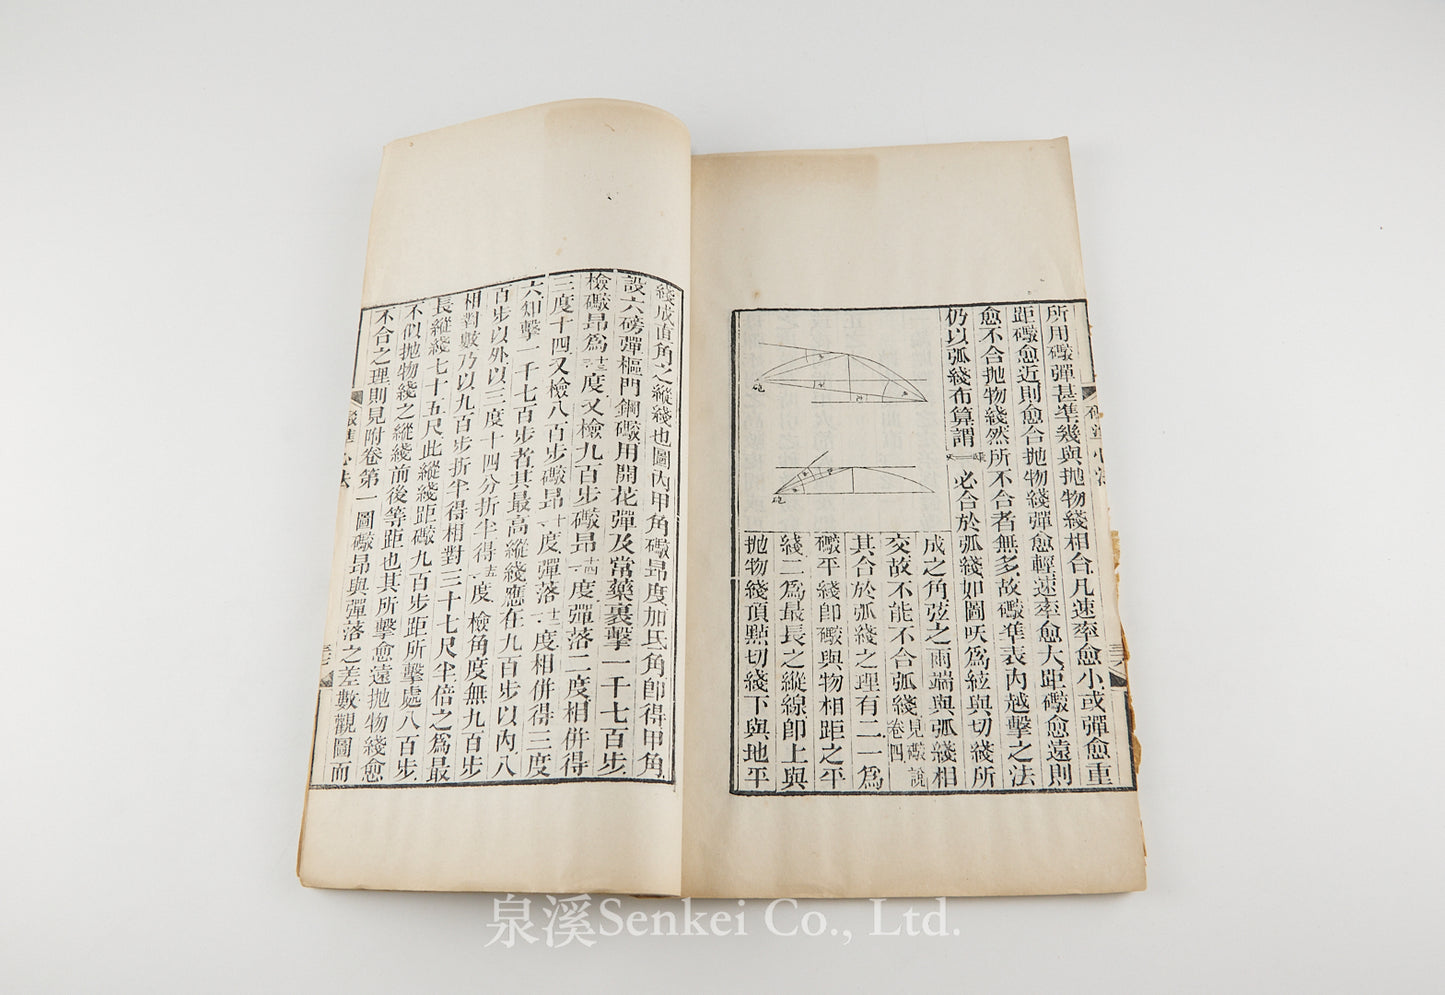 所用礮彈甚準幾與拋物綫相合凡速率愈小或彈愈重
距礮愈近則愈合拋物綫彈愈輕速率愈大距礮愈遠則
愈不合拋物綫然所不合者無多故礮準表內越擊之法
仍以弧綫布算謂
必合於弧綫如圖
為絃與切綫所
成之角弦之兩端與弧綫相
交故不能不合弧綫見礮說卷四
其合於弧綫之理有二一為
礮平綫即礮與物相距之平
綫二為最長之縱線即上與
拋物綫頂點切綫下與地平
綫成直角之縱綫也圖內甲角礮昂度加氐角即得甲角
設六磅彈樞門鋼礮用開花彈及常藥裹擊一千七百步
檢礮昂為十三度又檢九百步礮昂十四度彈落二度相併得
三度十四又檢八百步礮昂十度彈落十二度相併得三度
六知擊一千七百步者其最高縱綫應在九百步以內八
百步以外以三度十四分折半得五度檢角度無九百步
相對數乃以九百步折半得相對三十七尺半倍之為最
長縱綫七十五尺此縱綫距礮九百步距所擊處八百步
不似拋物綫之縱綫前後等距也其所擊愈遠拋物綫愈
不合之理則見附卷第一圖礮昂與彈落之差數觀圖而
礮準心法
泉溪Senkei Co., Ltd.